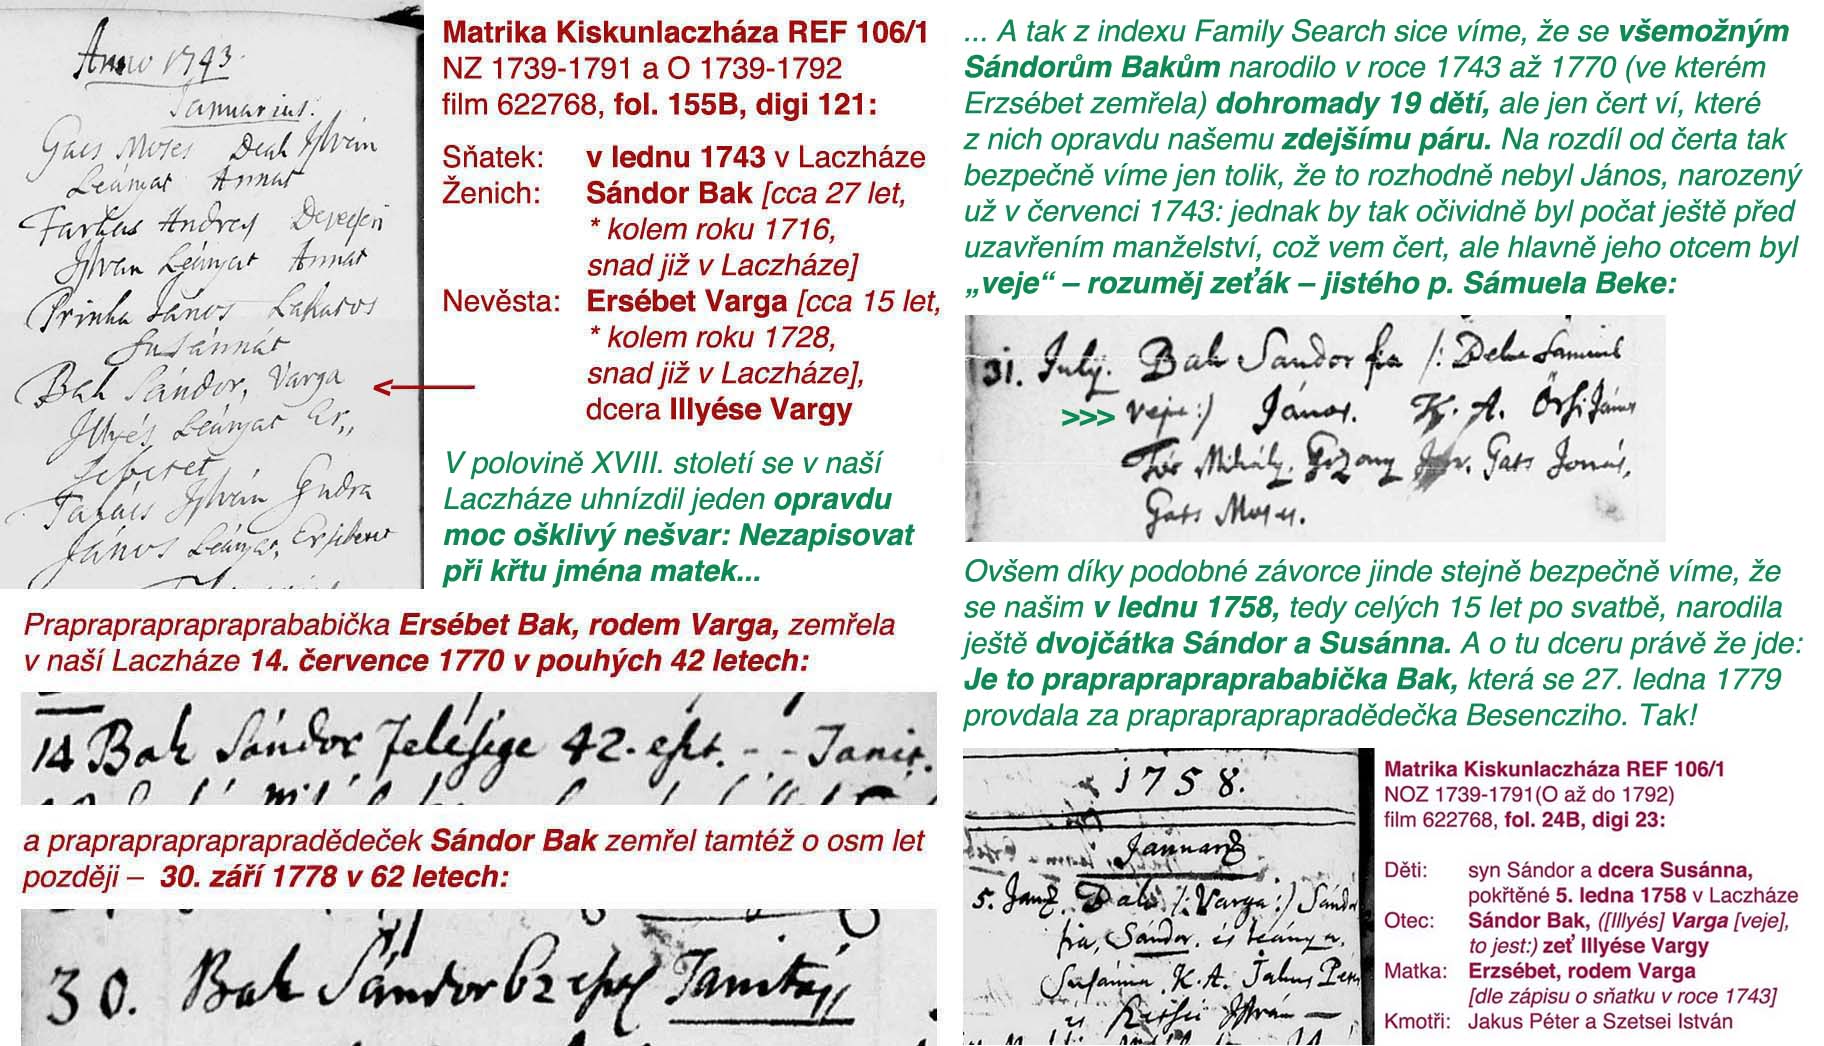 Anno 1743.
Januarius.
Gaes Moses Deak Istvan
Leányat Annat
Farkas Andres Devecseri
Istvan Leányat Annat
Prinka János Lakatos
Susánnát
Bak Sándor, Varga
Illyés Leányat Er,,
seberet
Takács Istvan Gudra
János Leányat, Ersiberet
Matrika Kiskunlaczháza REF 106/1
NZ 1739-1791 a O 1739-1792
film 622768, fol. 155B, digi 121:
Sňatek: v lednu 1743 v Laczháze
Ženich: Sándor Bak [cca 27 let,
* kolem roku 1716,
snad již v Laczháze]
Nevěsta: Ersébet Varga [cca 15 let,
* kolem roku 1728,
snad již v Laczháze],
dcera Illyése Vargy
<—
V polovině XVIII. století se v naší
Laczháze uhnízdil jeden opravdu
moc ošklivý nešvar: Nezapisovat
při křtu jména matek...
Praprapraprapraprababička Ersébet Bak, rodem Varga, zemřela
v naší Laczháze 14. července 1770 v pouhých 42 letech:
14 Bak Sándor Felésige 42. eszt. - - Tanit.
a prapraprapraprapradědeček Sándor Bak zemřel tamtéž o osm let
později – 30. září 1778 v 62 letech:
30. Bak Sándor 62 eszt Tanitás
... A tak z indexu Family Search sice víme, že se všemožným
Sándorům Bakům narodilo v roce 1743 až 1770 (ve kterém
Erzsébet zemřela) dohromady 19 dětí, ale jen čert ví, které
z nich opravdu našemu zdejšímu páru. Na rozdíl od čerta tak
bezpečně víme jen tolik, že to rozhodně nebyl János, narozený
už v červenci 1743: jednak by tak očividně byl počat ještě před
uzavřením manželství, což vem čert, ale hlavně jeho otcem byl
„veje“ – rozuměj zeťák – jistého p. Sámuela Beke:
31. July. Bak Sándor fia /: Beke Samuel
>>> veje :) János. K. A. Örsi János
Mihály. Gozony Gats Jonás,
Gats Moses.
Ovšem díky podobné závorce jinde stejně bezpečně víme, že
se našim v lednu 1758, tedy celých 15 let po svatbě, narodila
ještě dvojčátka Sándor a Susánna. A o tu dceru právě že jde:
Je to praprapraprapraprababička Bak, která se 27. ledna 1779
provdala za prapraprapraprapradědečka Besencziho. Tak!
1758.
Januar
5. Jan. Bak /: Varga :) Sándor
fia, Sándor. és leánya,
Susánna K. A. Jakus Péter
és Istvan —
Matrika Kiskunlaczháza REF 106/1
NOZ 1739-1791(O až do 1792)
film 622768, fol. 24B, digi 23:
Děti: syn Sándor a dcera Susánna,
pokřtěné 5. ledna 1758 v Laczháze
Otec: Sándor Bak, ([Illyés] Varga [veje],
to jest:) zeť Illyése Vargy
Matka: Erzsébet, rodem Varga
[dle zápisu o sňatku v roce 1743]
Kmotři: Jakus Péter a Szetsei István